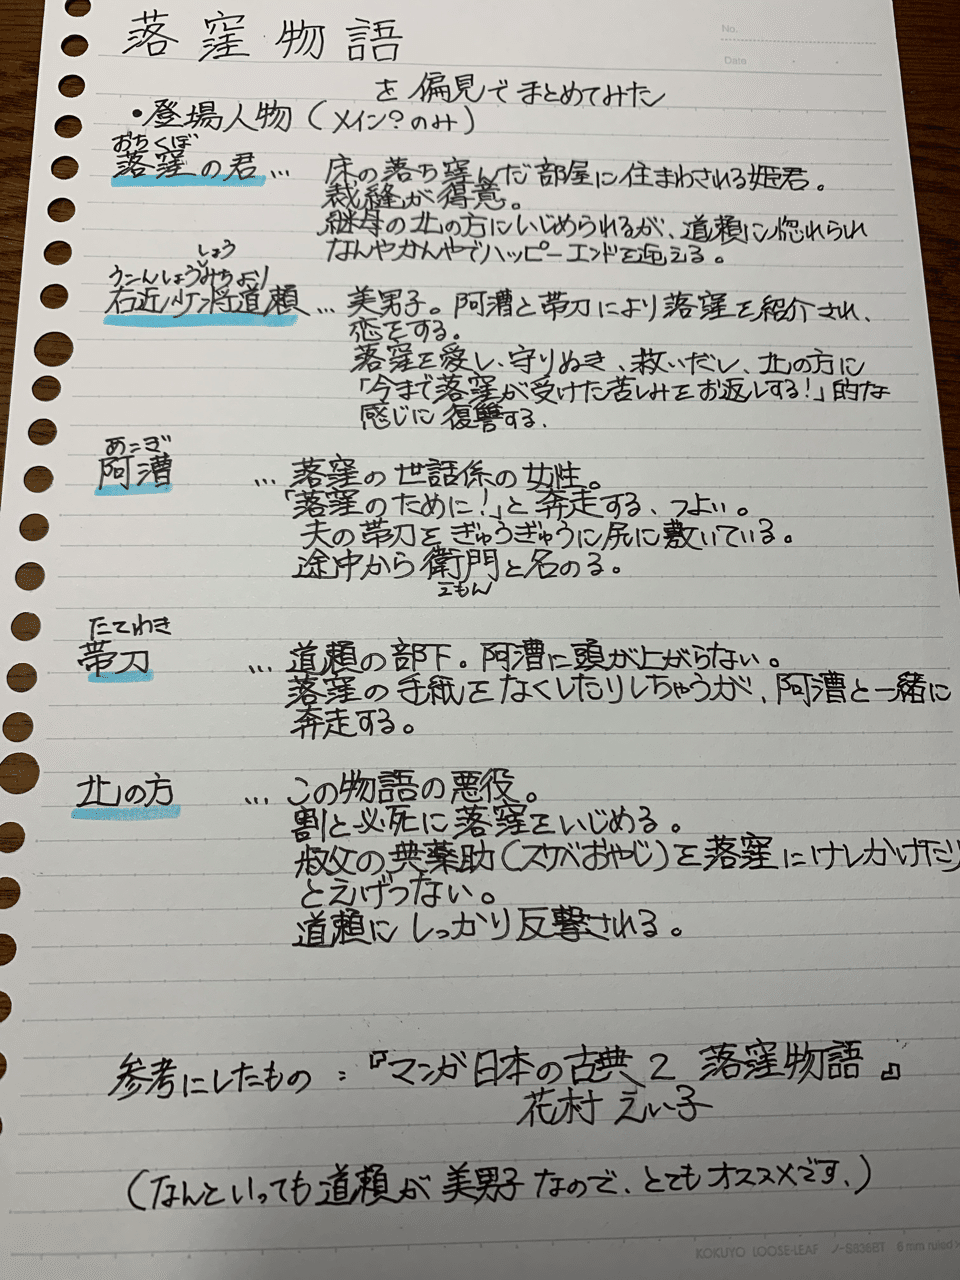 落窪物語
No.
Date
を偏見でまとめてみた
・登場人物(メイン?のみ)
おちくぼ
落窪の君… 床の落ち窪んだ部屋に住まわされる姫君。
裁縫が得意。
継母の北の方にいじめられるが、道頼に惚れられ
なんやかんやでハッピーエンドを迎える。
しょう
うこんしょうみちより
右近少将道頼… 美男子。阿漕と帯刀により落窪を紹介され、
恋をする。
落窪を愛し、守りぬき、救いだし、北の方に
「今まで落窪が受けた苦しみをお返しする!」的な
感じに復讐する、
あこぎ
阿漕 … 落窪の世話係の女性。
「落窪のために!」と奔走する、つよい。
夫の帯刀をぎゅうぎゅうに尻に敷いている。
途中から衛門と名のる。
えもん
たてわき
帯刀 … 道頼の部下。阿漕に頭が上がらない。
落窪の手紙をなくしたりしちゃうが、阿漕と一緒に
奔走する。
北の方 … この物語の悪役。
割と必死に落窪をいじめる。
叔父の典薬助(スケベおやじ)を落窪にけしかけたり
とえげつない。
道頼にしっかり反撃される。
参考にしたもの:『マンガ日本の古典2 落窪物語』
花村えい子
(なんといっても道頼が美男子なので、とてもオススメです、)
KOKUYO LOOSE-LEAF ノ-S836BT 6 mm ruled